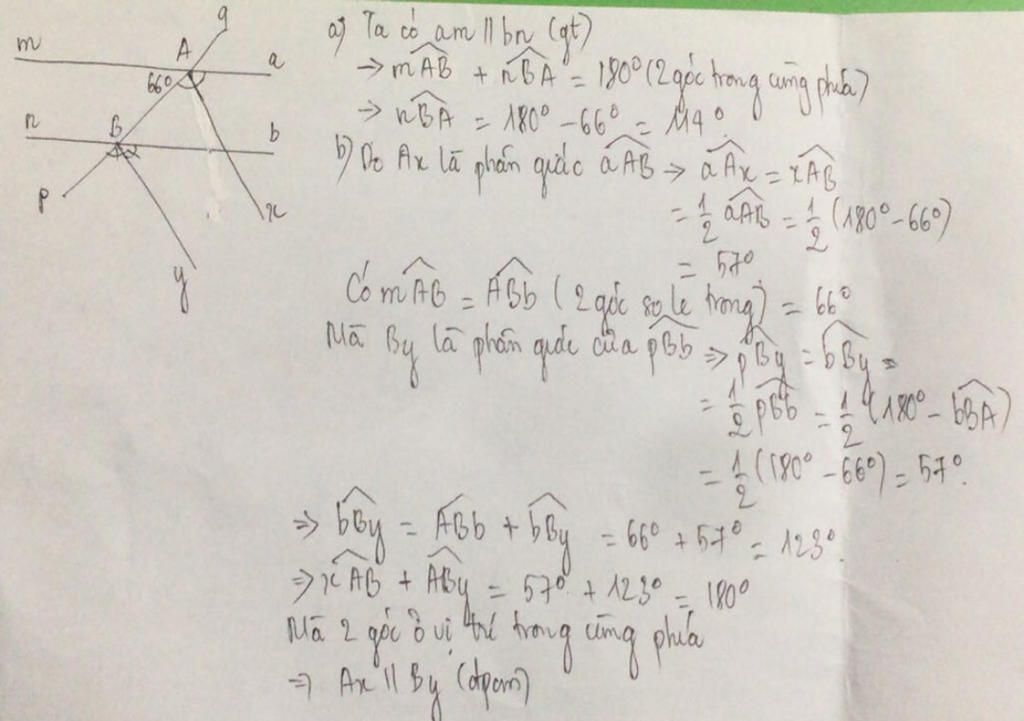 g
m
A
a
66°
n
B
b
p
x
y
a) Ta có am // bn (gt)
→ \widehat{mAB} + \widehat{nBA} = 180° (2 góc trong cùng phía)
→ \widehat{nBA} = 180° - 66° = 114°
b) Do Ax là phân giác \widehat{aAB} → \widehat{aAx} = \widehat{xAB}
= \frac{1}{2} \widehat{aAB} = \frac{1}{2} (180° - 66°)
= 57°
Có \widehat{mAB} = \widehat{ABb} (2 góc so le trong) = 66°
Mà By là phân giác của \widehat{pBb} ⇒ \widehat{pBy} = \widehat{bBy} =
= \frac{1}{2} \widehat{pBb} = \frac{1}{2} (180° - \widehat{bBA})
= \frac{1}{2} (180° - 66°) = 57°.
⇒ \widehat{bBy} = \widehat{ABb} + \widehat{bBy} = 66° + 57° = 123°.
⇒ \widehat{xAB} + \widehat{ABy} = 57° + 123° = 180°
Mà 2 góc ở vị trí trong cùng phía
⇒ Ax // By (đpcm)